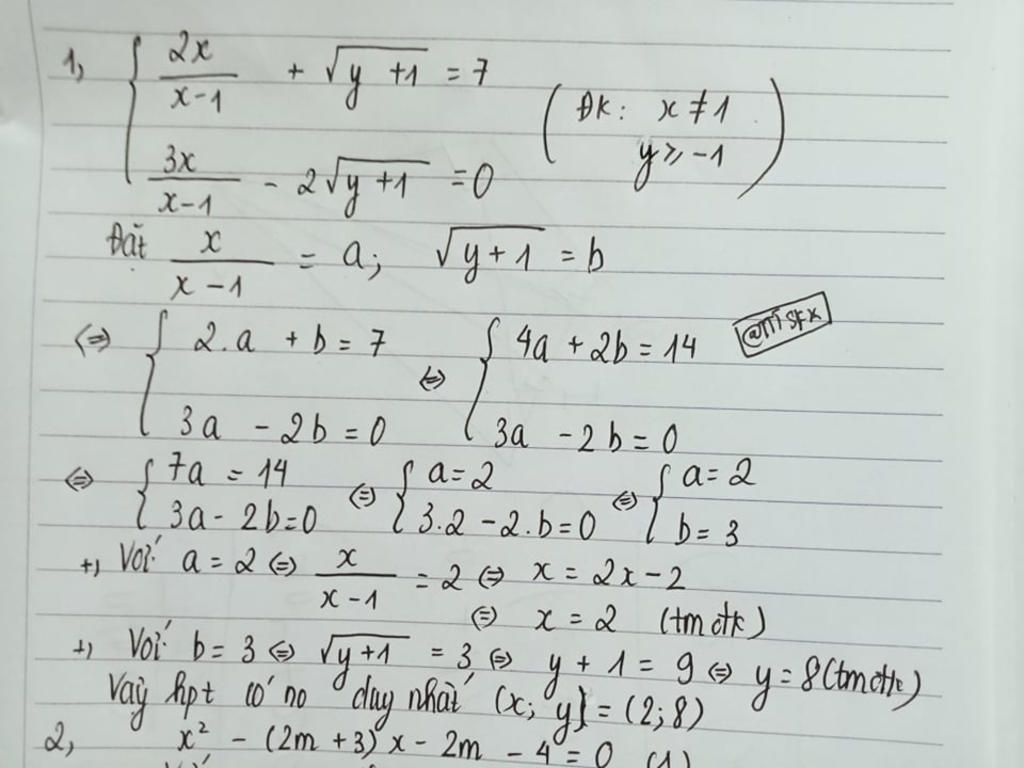 1, { 2x/(x-1) + √(y+1) = 7
3x/(x-1) - 2√(y+1) = 0
(ĐK: x ≠ 1
y ≥ -1)
Đặt x/(x-1) = a; √(y+1) = b
⇔ { 2.a + b = 7
3a - 2b = 0
⇔ { 4a + 2b = 14
3a - 2b = 0
⇔ { 7a = 14
3a - 2b = 0
⇔ { a = 2
3.2 - 2.b = 0
⇔ { a = 2
b = 3
+) Với a = 2 ⇔ x/(x-1) = 2 ⇔ x = 2x - 2
⇔ x = 2 (tmđk)
+) Với b = 3 ⇔ √(y+1) = 3 ⇔ y + 1 = 9 ⇔ y = 8 (tmđk)
Vậy hpt có no duy nhất (x; y) = (2; 8)
2, x² - (2m + 3)x - 2m - 4 = 0 (1)